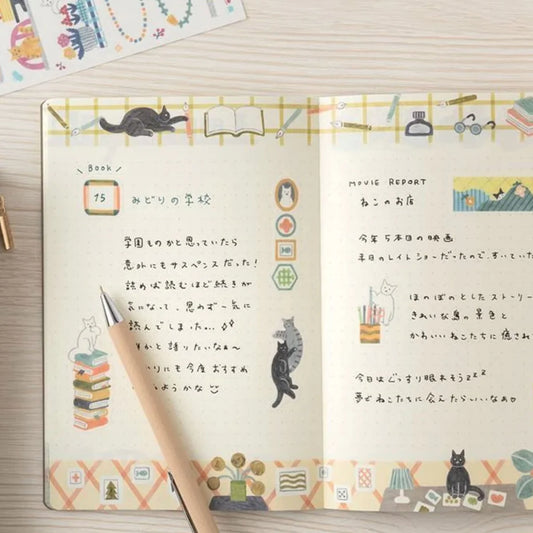 Book
15
みどりの学校
学園ものかと思っていたら
意外にもサスペンスだった!
読めば読むほど続きが
気になって、思わず一気に
読んでしまった...
かと語りたいなぁ〜
りにも今度おすすめ
ようかな
MOVIE REPORT
ねこのお店
今年5本目の映画
平日のレイトショーだったので、すいていた
ほのぼのとしたストーリー
きれいな島の景色と
かわいいねこたちに癒され
今日はぐっすり眠れそうzzz
夢でねこたちに会えたらいいなぁ